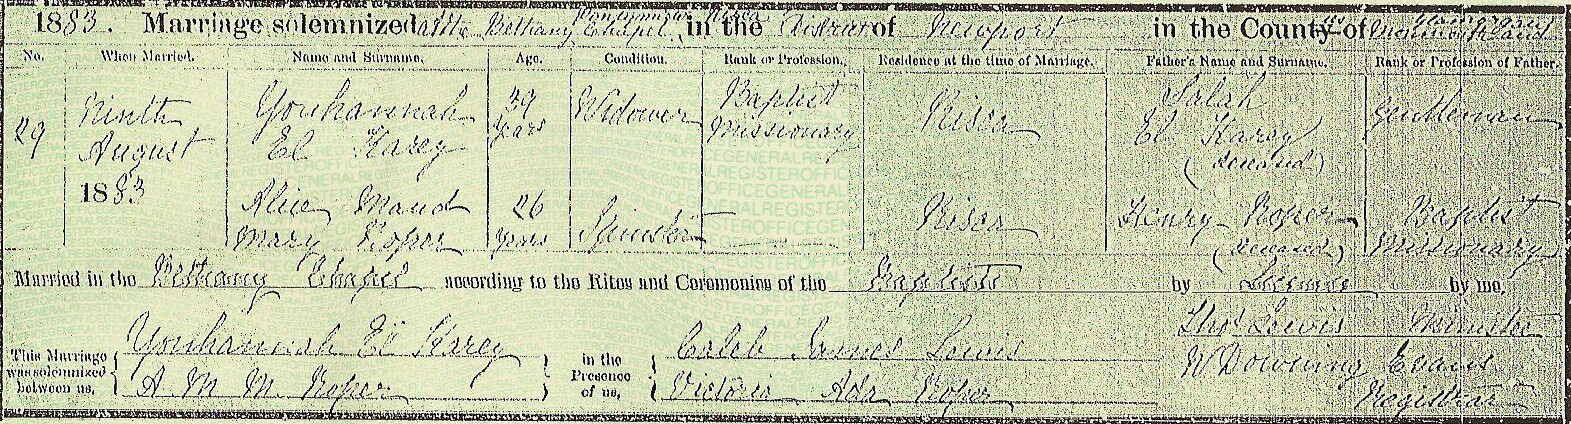 1883. Marriage solemnized at the Bethany Chapel, Risca in the District of Newport in the County of Monmouth
No. When Married. Name and Surname. Age. Condition. Rank or Profession. Residence at the time of Marriage. Father's Name and Surname. Rank or Profession of Father.
29 Ninth August 1883 Youhannah El Karey 39 years Widower Baptist Missionary Risca Salah El Karey (deceased) Gentleman
Alice Maud Mary Roper 26 years Spinster Risca Henry Roper (deceased) Baptist Missionary
Married in the Bethany Chapel according to the Rites and Ceremonies of the Baptists by License by me,
This Marriage was solemnized between us, Youhannah El Karey in the Presence of us, Caleb James Lewis Thos Lewis Minister
A M M Roper Victoria Ada Roper W Downing Evans Registrar